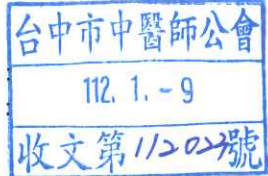 台中市中醫師公會
112. 1. - 9
收文第112023號